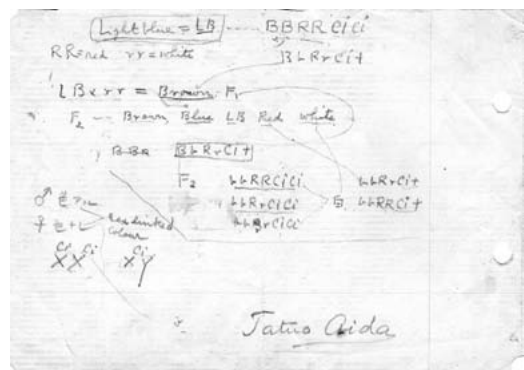 Light blue = LB ---- BBRRCiCi
RR=red rr=white BbRrCi+
LB x rr = Brown F1
F2 --- Brown, Blue LB Red white
BbRrCi+
F2 bbRRCiCi bbRrCi+
bbRrCiCi bbRRCi+
colour
Ci Ci Ci
XX XY
Tatuo Aida